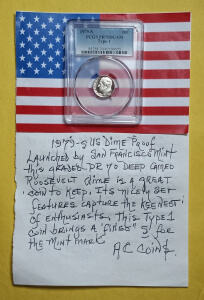 1979-S 10C
PCGS PR70DCAM
Type 1
1979-S US DIME PROOF
LAUNCHED by SAN FRANCISCO MINT
this GRADED PR 70 DEEP CAMEO
ROOSEVELT DIME is A GREAT
COIN to KEEP. Its nicely set
FEATURES CAPTURE the KEENEST
OF ENTHUSIASTS. This TYPE 1
COIN BRINGS A "FILLED" S for
the MINT MARK.
AC COIN$